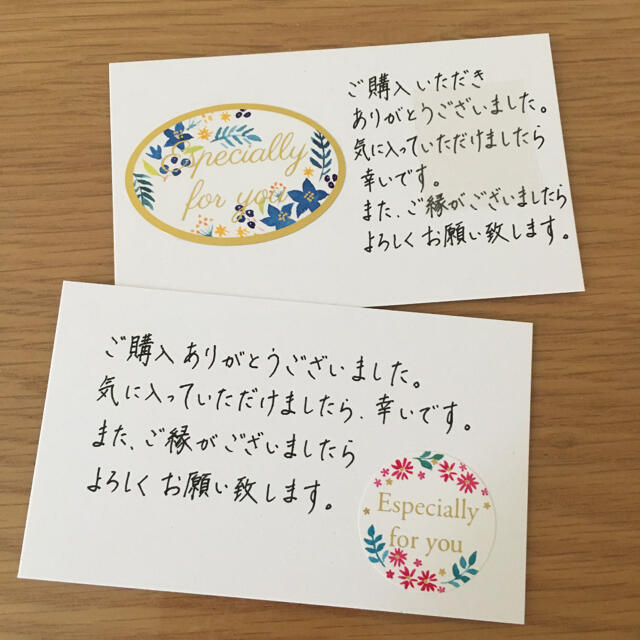 Especially
for you
ご購入いただき
ありがとうございました。
気に入っていただけましたら
幸いです。
また、ご縁がございましたら
よろしくお願い致します。
ご購入ありがとうございました。
気に入っていただけましたら、幸いです。
また、ご縁がございましたら
よろしくお願い致します。
Especially
for you